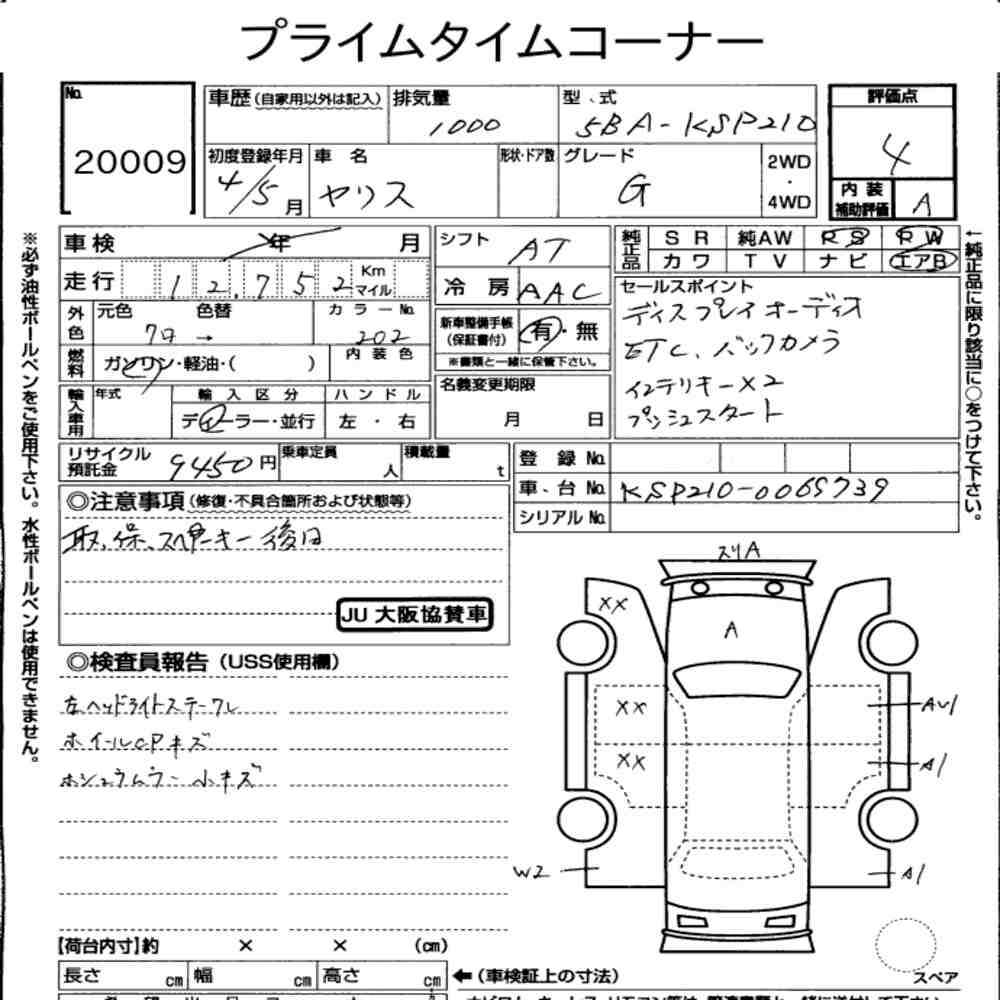 プライムタイムコーナー
No. 20009
車歴(自家用以外は記入) 排気量 1000 型式 5BA-KSP210
評価点 4
初度登録年月 4/5月 車名 ヤリス 形状・ドア数 グレード G 2WD・4WD
内装補助評価 A
車検 年 月
走行 12,752 Km マイル
外色 元色 色替 → カラーNo. 202
燃料 ガソリン・軽油・( ) 内装色
輸入車用 年式 輸入区分 ハンドル
ディーラー・並行 左・右
シフト AT
冷房 AAC
新車整備手帳(保証書付) 有・無
※書類と一緒に保管下さい。
名義変更期限
月 日
純正品 SR 純AW PS PW
カワ TV ナビ エアB
セールスポイント
ディスプレイオーディオ
ETC、バックカメラ
インテリキーX2
プッシュスタート
リサイクル預託金 9450円 乗車定員 人 積載量 t
登録No.
車台No. KSP210-0065739
シリアルNo.
◎注意事項(修復・不具合箇所および状態等)
取、保、スペアーキー後日
JU 大阪協賛車
◎検査員報告(USS使用欄)
左ヘッドライトステーワレ
ホイールCPキズ
※必ず油性ボールペンをご使用下さい。水性ボールペンは使用できません。
←純正品に限り該当に○をつけて下さい。
スリA
XX
A
XX
AU1
XX
A1
W2
A1
スペア
【荷台内寸】約 × × (cm)
長さ cm 幅 cm 高さ cm ←(車検証上の寸法)